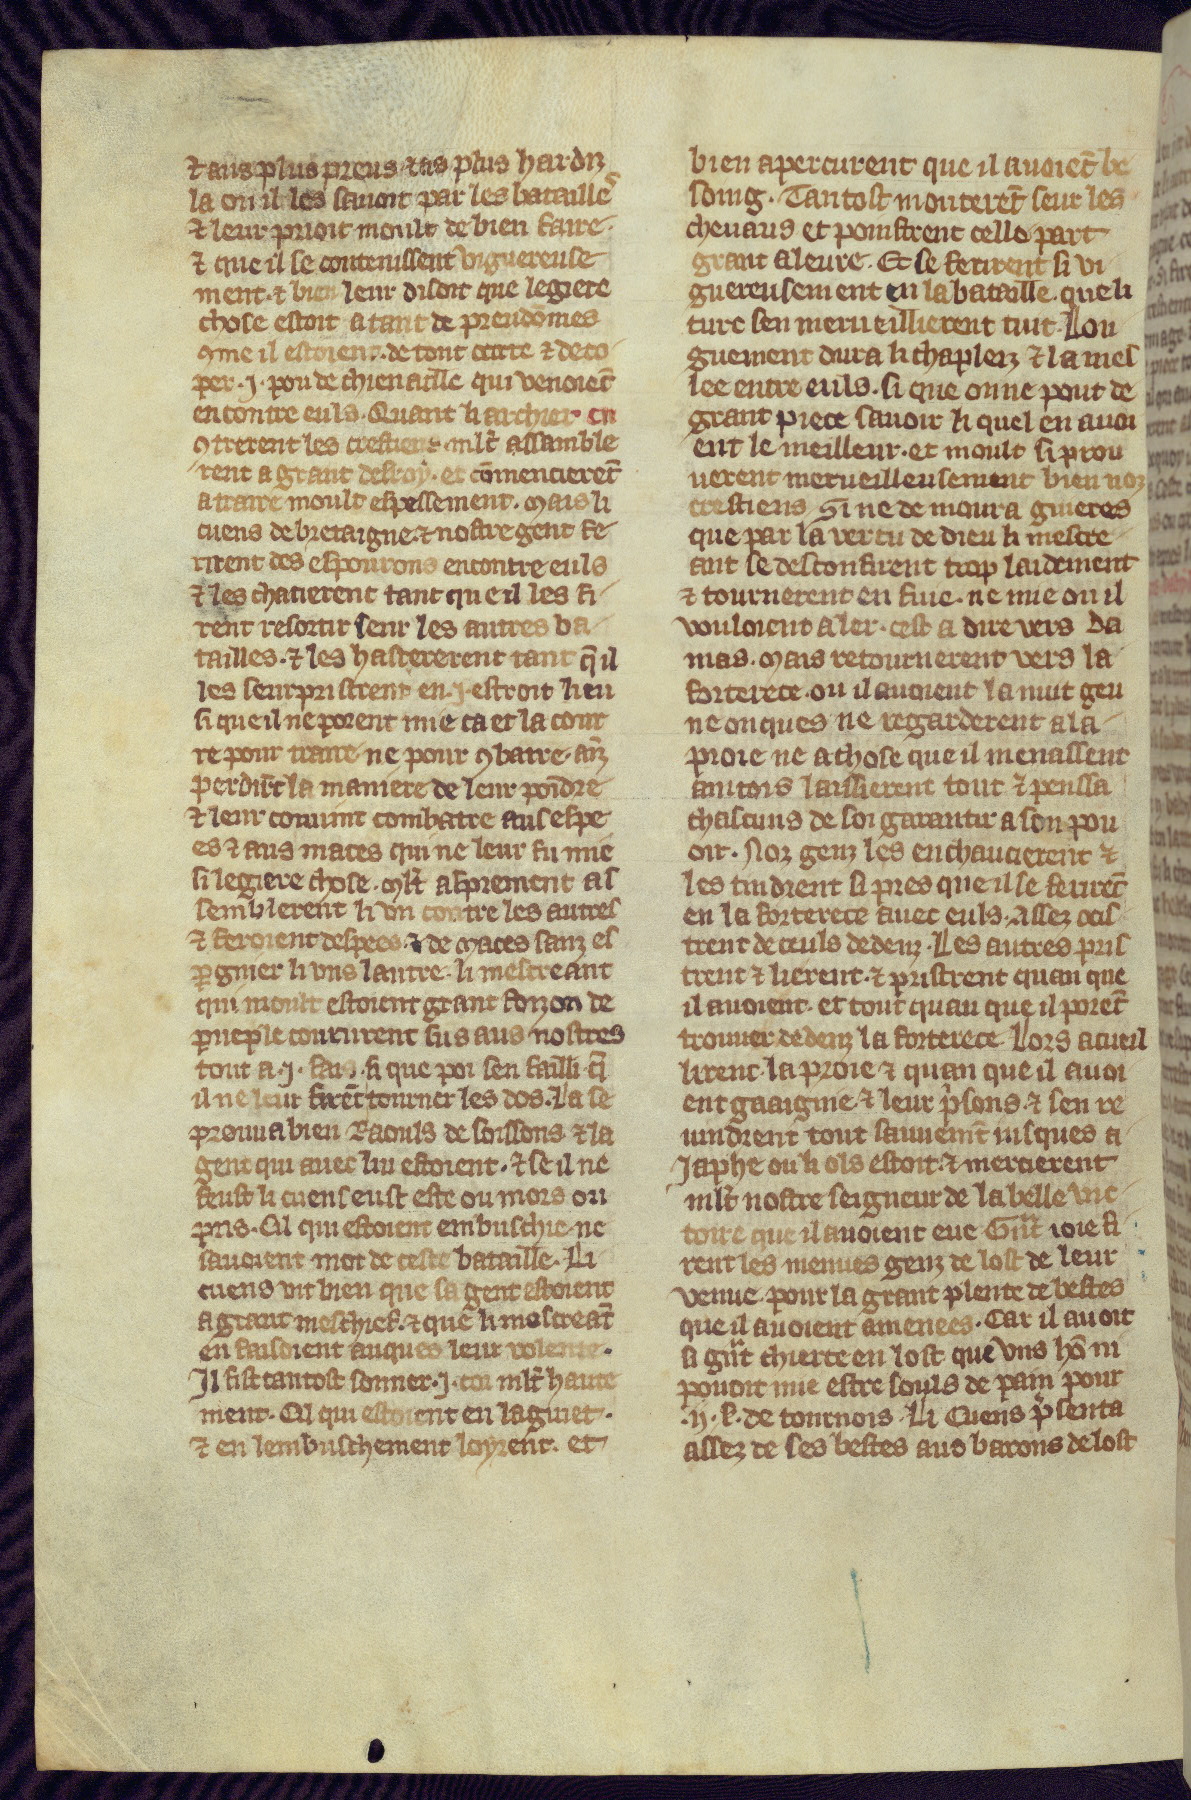 ⁊ aus plus preus ⁊ as plus hardiz
la ou il les sauoit par les bataille˜
⁊ leur prioit moult de bien faire.
⁊ que il se contenissent viguereuse
ment. ⁊ bien leur disoit que legiere
chose estoit a tant de preudomes
ꝯme il estoient. de tout outre ⁊ de co
per .i. pou de chienaille qui venoiēt
encontre euls. Quant li archier en
ꝯtrerent les crestiens. mlt̄ assamble
rent a grant desroy. et cōmencierēt
a traire moult espessement. Mais li
cuens de bretaigne. ⁊ nostre gent fe
rirent des espourons encontre euls
⁊ les chacierent tant que il les fi
rent resortir seur les autres ba
tailles. ⁊ les hastererent tant q̄ il
les seurpristrent en .i. estroit lieu
si que il ne porent mie ca et la cour
re pour traire. ne pour ꝯbatre. aīz
perdirēt la maniere de leur poīdre
⁊ leur couuint combatre aus espe
es ⁊ aus maces qui ne leur fu mie
si legiere chose. Mlt̄ asprement as
semblerent li vn contre les autres
⁊ feroient despees. ⁊ de Maces sanz es
ꝑgnier li vns lautre. li mescreant
qui moult estoient grant foizon de
pueple coururent sus aus nostres
tout a .i. fais. si que poi sen failli. q̄
il ne leur firēt tourner les dos. La se
prouua bien Raouls de soissons. ⁊ la
gent qui auec lui estoient. ⁊ se il ne
feust li cuens eust este ou mors ou
pris. Cil qui estoient embuschie ne
sauoient mot de ceste bataille. Li
cuens vit bien que sa gent estoient
a grant meschief. ⁊ que li mescreāt
en faisoient auques leur volente.
Il fist tantost sonner .i. cor mlt̄ haute
ment. Cil qui estoient en laguiet.
⁊ en lembuschement loyrent. et
bien apercurent que il auoiēt be
soing. Tantost monterēt seur les
cheuaus et poinstrent celle part
grant aleure. Et se ferirent si vi
guereusement en la bataille. que li
turc sen merueillierent tuit. Lon
guement dura li chapleiz ⁊ la mes
lee entre euls. si que on ne pout de
grant piece sauoir li quel en auoi
ent le meilleur. et moult si prou
uerent merueilleusement bien noz
crestiens. Si ne demoura guieres
que par la vertu de dieu li mescre
ant se desconfirent trop laidement
⁊ tournerent en fuie. ne mie ou il
vouloient aler. cest a dire vers Da
mas. Mais retournerent vers la
forterece. ou il auoient la nuit geu
ne onques ne regarderent a la
proie ne a chose que il menassent
aincois laissierent tout ⁊ penssa
chascuns de soi garantir a son pou
oir. Noz genz les enchaucierent ⁊
les tindrent si pres que il se ferirēt
en la forterece auec euls. Assez ocis
trent de ceuls dedenz. Les autres pris
trent ⁊ lierent. ⁊ pristrent quan que
il auoient. et tout quan que il porēt
trouuer dedenz la forterece. Lors acueil
lirent la proie ⁊ quan que il auoi
ent gaaignie. ⁊ leur p̄sons. ⁊ sen re
uindrent tout sauuemēt iusques a
Japhe ou li ols estoit. ⁊ mercierent
mlt̄ nostre seigneur de la belle vic
toire que il auoient eue. Gnt̄ ioie fi
rent les menues genz de lost de leur
venue. pour la grant plente de bestes
que il auoient amenees. Car il auoit
si gnt̄ chierte en lost que vns hō ni
pouoit mie estre souls de pain pour
.ij. s. de tournois. Li Cuens p̄senta
assez de ses bestes aus barons de lost